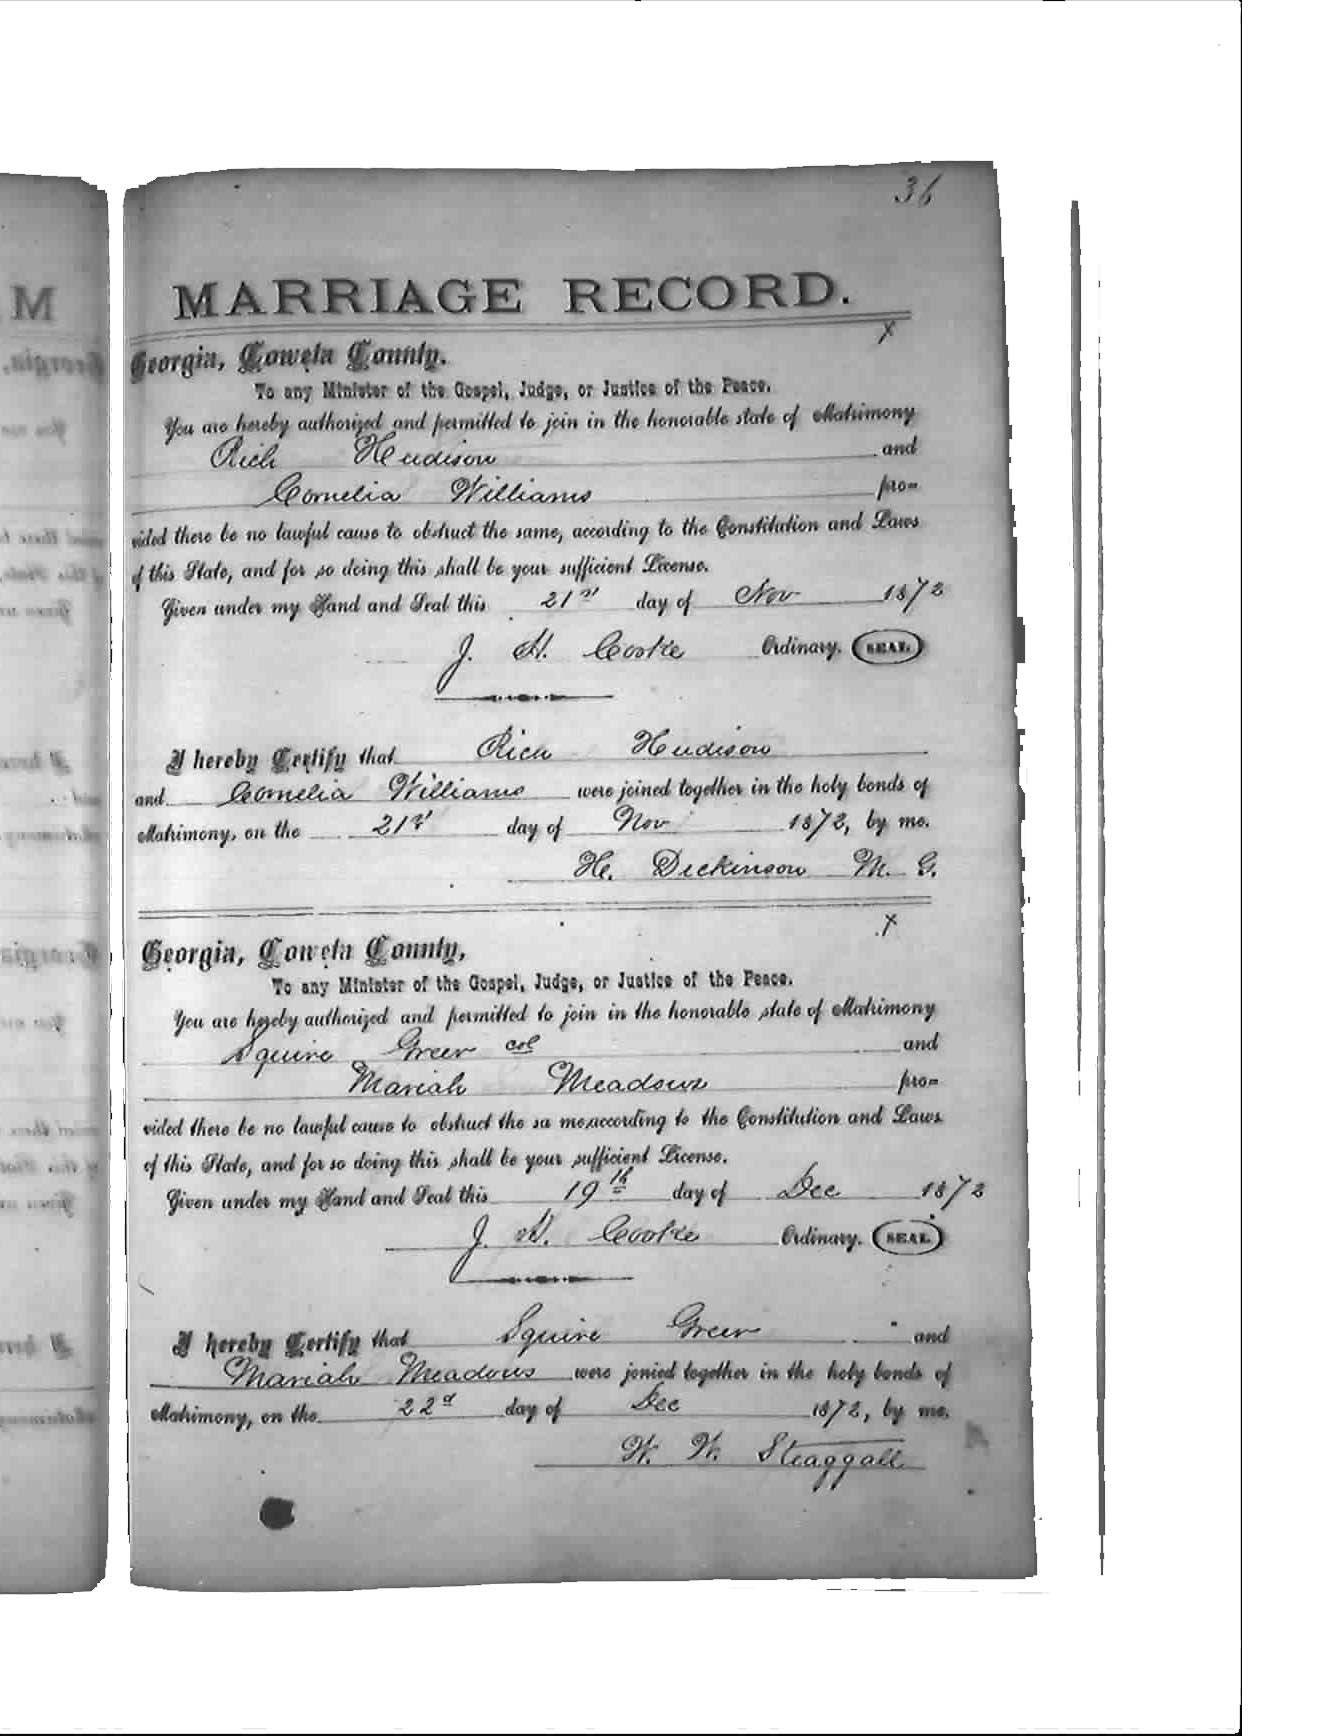 36
MARRIAGE RECORD.
x
Georgia, Coweta County.
To any Minister of the Gospel, Judge, or Justice of the Peace.
You are hereby authorized and permitted to join in the honorable state of Matrimony
Rich Hudison and
Cornelia Williams pro=
vided there be no lawful cause to obstruct the same, according to the Constitution and Laws
of this State, and for so doing this shall be your sufficient License.
Given under my Hand and Seal this 21st day of Nov 1872
J. H. Cooke Ordinary. SEAL.
I hereby Certify that Rich Hudison
and Cornelia Williams were joined together in the holy bonds of
Matrimony, on the 21st day of Nov 1872, by me.
H. Dickinson M. G.
x
Georgia, Coweta County,
To any Minister of the Gospel, Judge, or Justice of the Peace.
You are hereby authorized and permitted to join in the honorable state of Matrimony
Squire Greer col and
Mariah Meadows pro=
vided there be no lawful cause to obstruct the sa me,according to the Constitution and Laws
of this State, and for so doing this shall be your sufficient License.
Given under my Hand and Seal this 19th day of Dec 1872
J. H. Cooke Ordinary. SEAL.
I hereby Certify that Squire Greer and
Mariah Meadows were jonied together in the holy bonds of
Matrimony, on the 22d day of Dec 1872, by me.
W. W. Steaggall